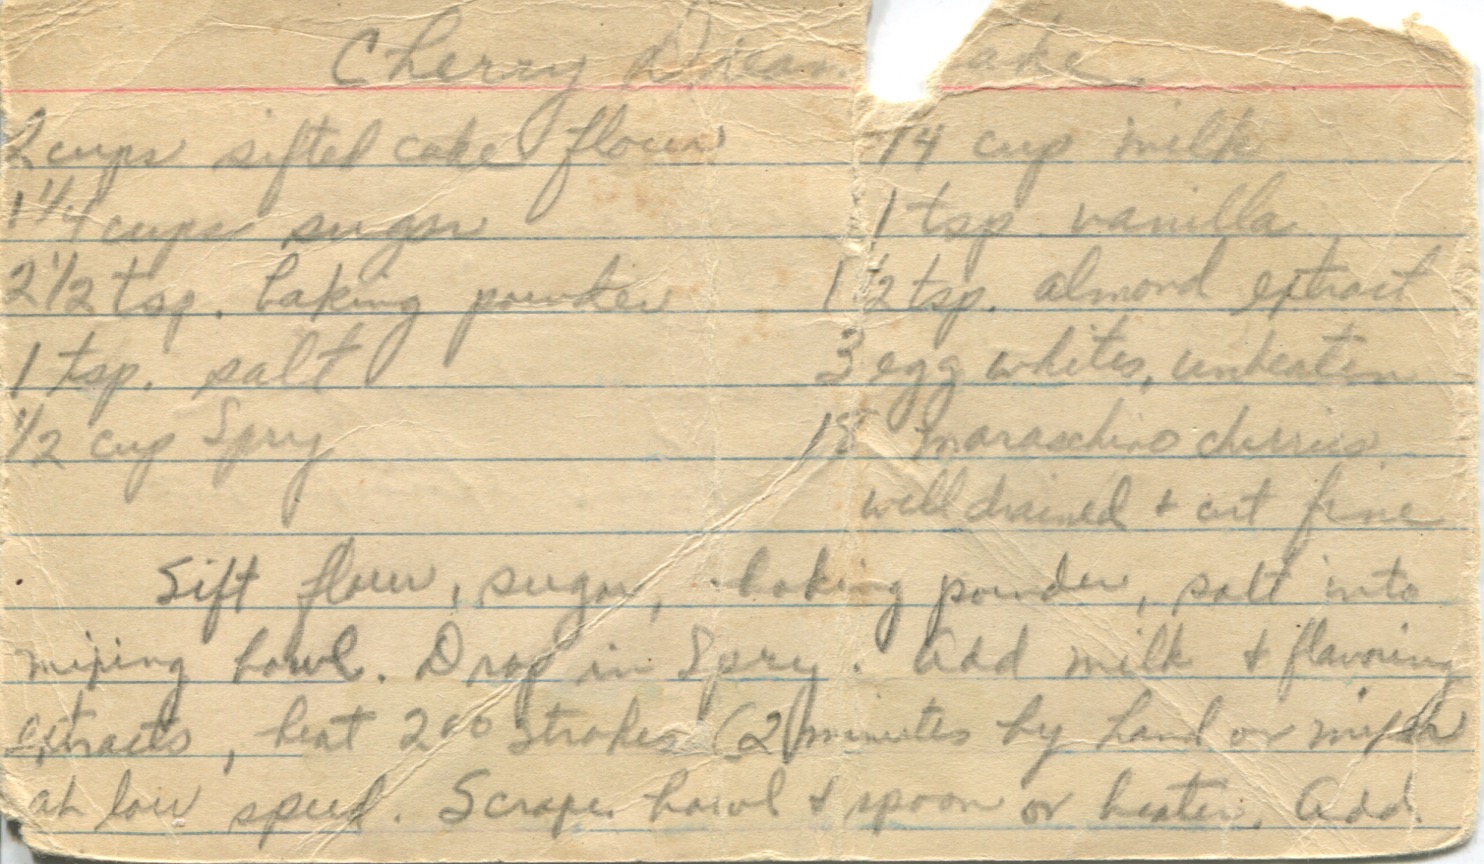 Cherry Dream ake
2 cups sifted cake flour
1 1/4 cups sugar
2 1/2 tsp. baking powder
1 tsp. salt
1/2 cup Spry
/4 cup milk
1 tsp vanilla
1/2 tsp. almond extract
3 egg whites, unbeaten
18 maraschino cherries
well drained & cut fine
Sift flour, sugar, baking powder, salt into
mixing bowl. Drop in Spry. Add milk & flavoring
extracts, beat 200 strokes (2 minutes by hand or mixer
at low speed. Scrape bowl & spoon or beater. Add